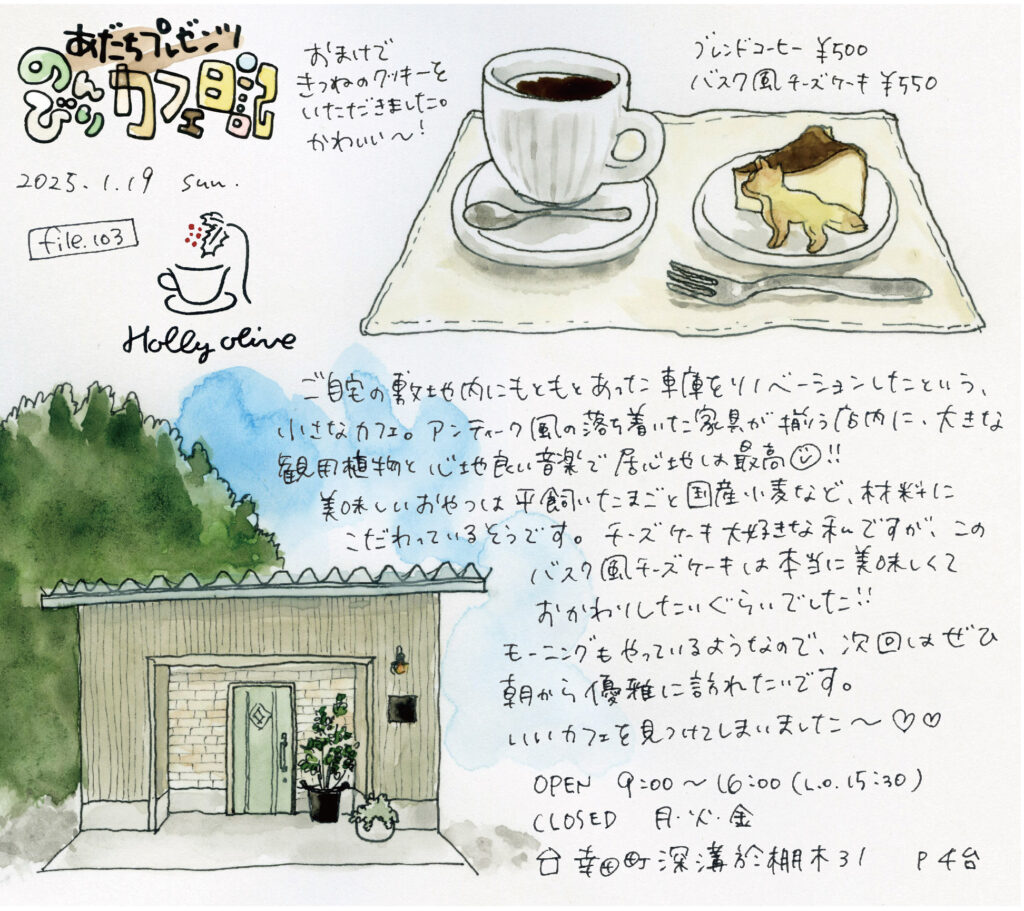 あだちプレゼンツ
のんびりカフェ日記
2025.1.19 sun.
file.103
Holly olive
おまけで
きつねのクッキーを
いただきました。
かわいい〜!
ブレンドコーヒー ¥500
バスク風チーズケーキ ¥550
ご自宅の敷地内にもともとあった車庫をリノベーションしたという、
小さなカフェ。アンティーク風の落ち着いた家具が揃う店内に、大きな
観用植物と心地良い音楽で居心地は最高☺!!
美味しいおやつは平飼いたまごと国産小麦など、材料に
こだわっているそうです。チーズケーキ大好きな私ですが、この
バスク風チーズケーキは本当に美味しくて
おかわりしたいぐらいでした!!
モーニングもやっているようなので、次回はぜひ
朝から優雅に訪れたいです。
いいカフェを見つけてしまいました〜♡♡
OPEN 9:00〜16:00(L.O.15:30)
CLOSED 月・火・金
幸田町深溝於棚木31 P4台